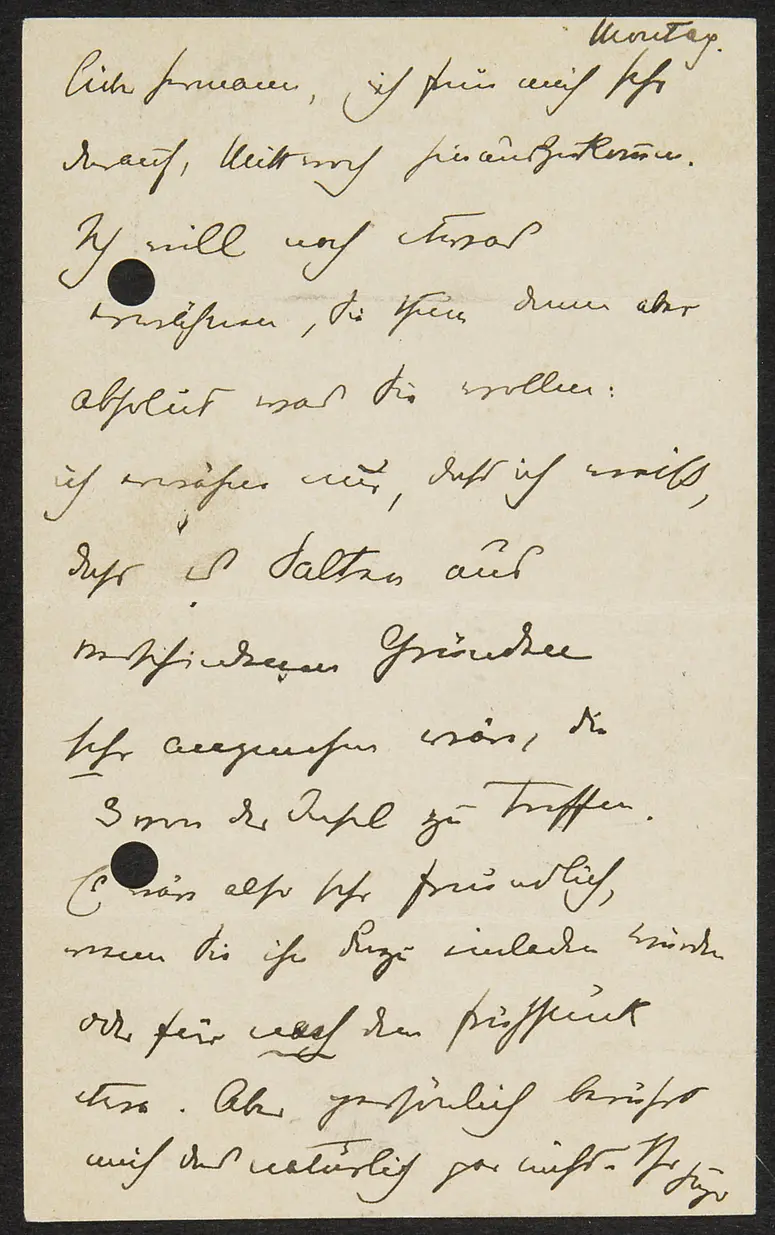 Montag.
lieber Hermann, ich freue mich sehr
darauf, Mittwoch hinauszukommen.
Ich will noch etwas
erwähnen, Sie thuen dann aber
absolut was Sie wollen:
ich erwähne nur, dass ich weiß,
dass es Salten aus
verschiedenen Gründen
sehr angenehm wäre, die
von der Insel zu treffen.
Es wäre also sehr freundlich,
wenn Sie ihn dazu einladen würden
oder für nach dem Frühstück
etwa. Aber persönlich berührt
mich das natürlich gar nicht. Ihr Hugo